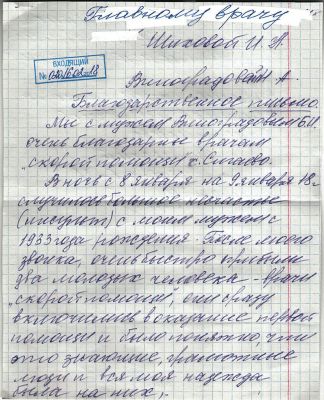 Главному врачу
Шиховой И. А.
ВХОДЯЩИЙ
№
Виноградовой А.
Благодарственное письмо.
Мы с мужем Виноградовым Б.И.
очень благодарны врачам
"скорой помощи" г.
В ночь с 8 января на 9 января 18г
случилось большое несчастье
(инсульт) с моим мужем с
1933 года рождения. После моего
звонка, очень быстро прибыли
два молодых человека - врачи
"скорой помощи", они сразу
включились в оказание первой
помощи и было понятно, что
это знающие, грамотные
люди и вся моя надежда
была на них,